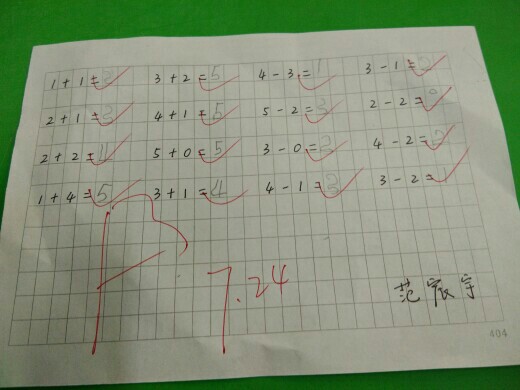 1 + 1 = 2 3 + 2 = 5 4 - 3 = 1 3 - 1 = 2
2 + 1 = 3 4 + 1 = 5 5 - 2 = 3 2 - 2 =
2 + 2 = 4 5 + 0 = 5 3 - 0 = 3 4 - 2 = 2
1 + 4 = 5 3 + 1 = 4 4 - 1 = 3 3 - 2 = 1
7.24
范宸宇
404